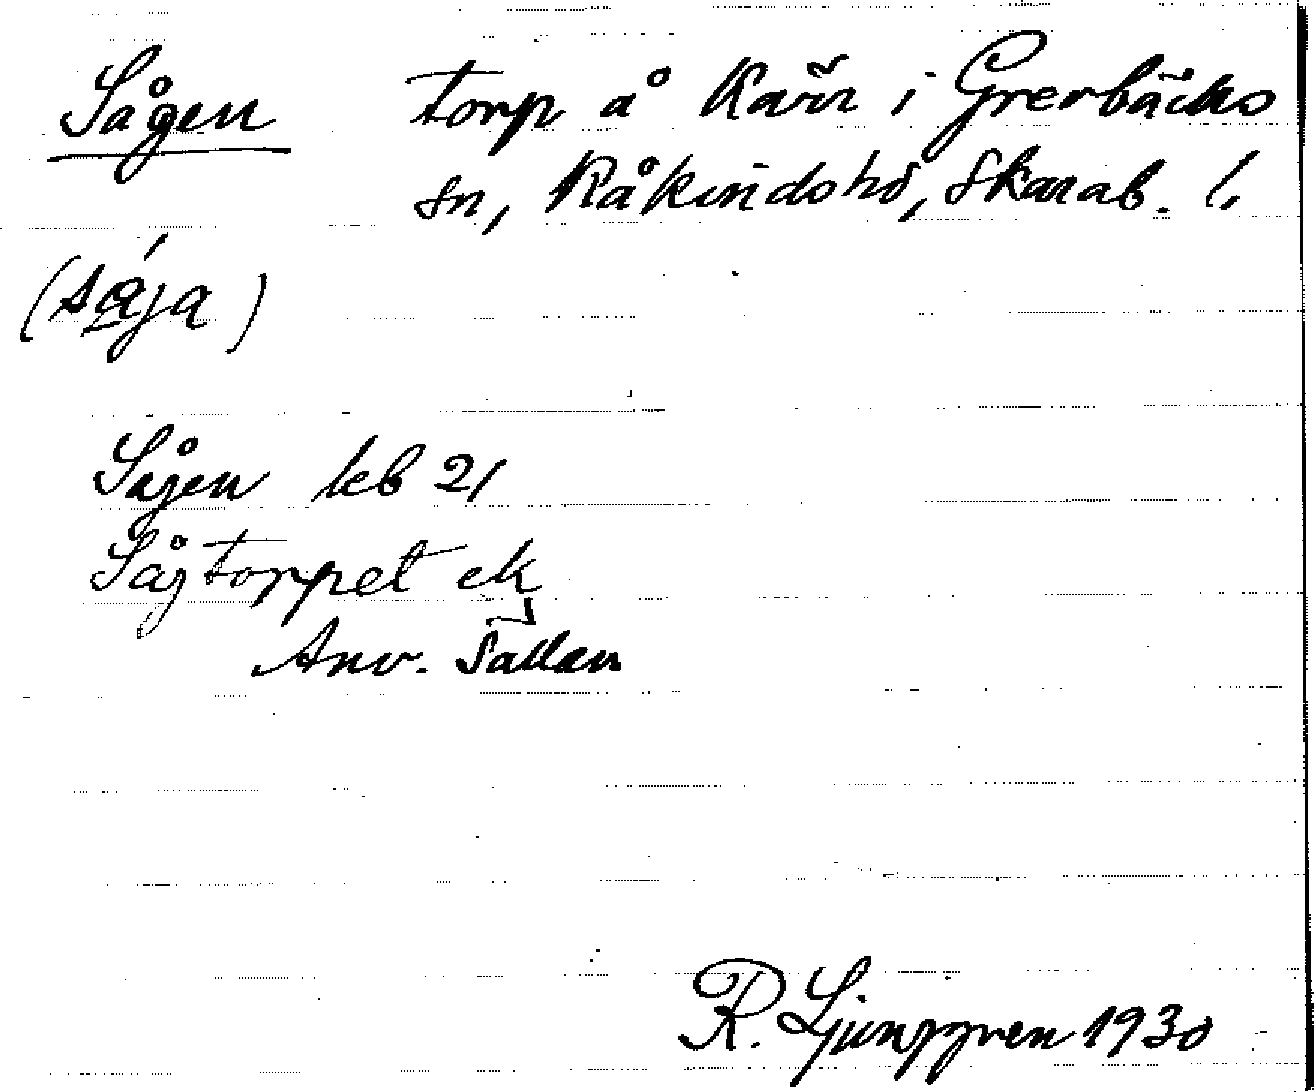 Sågen torp å Kärr i Grevbäcks
sn, Kåkindshd, Skarab. l.
(såja)
Sågen leb 21
Sågtorpet ek
Anv. Sällan
R. Ljunggren 1930